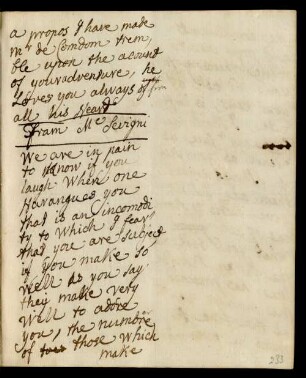 a propos I have made
mr de Comdom trem,
ble upon the acount
of your adventure, he
Loves you always of from
all his Heart
From Me Sevigni
We are in pain
to know if you
laugh When one
Harangues you
that is an incomodi
ty to Which I fear
that you are Subject
if you make so
Well as you say
they make very
Well to adore
you, the numbre
of those Which
make
233